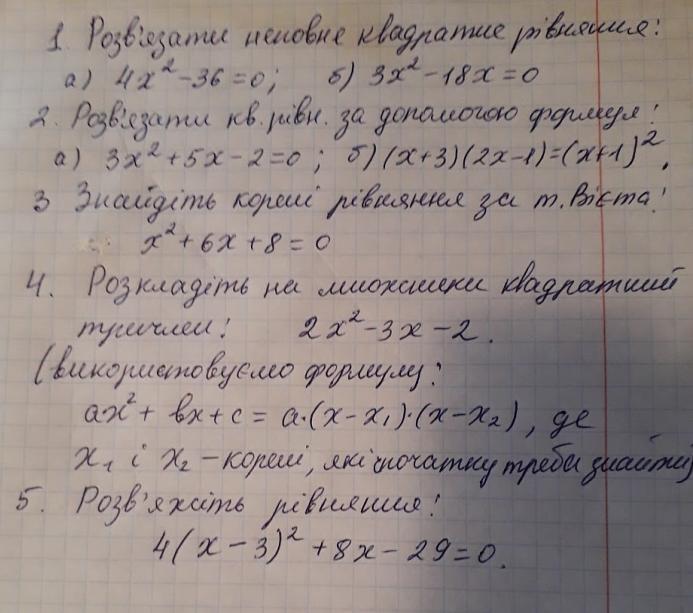 1. Розв'язати неповне квадратне рівняння:
а) 4x² - 36 = 0; б) 3x² - 18x = 0
2. Розв'язати кв. рівн. за допомогою формул:
а) 3x² + 5x - 2 = 0; б) (x+3)(2x-1) = (x+1)².
3 Знайдіть корені рівняння за т. Вієта:
x² + 6x + 8 = 0
4. Розкладіть на множники квадратний
тричлен: 2x² - 3x - 2.
(використовуємо формулу:
ax² + bx + c = a·(x - x₁)·(x - x₂), де
x₁ і x₂ - корені, які спочатку треба знайти)
5. Розв'яжіть рівняння:
4(x - 3)² + 8x - 29 = 0.